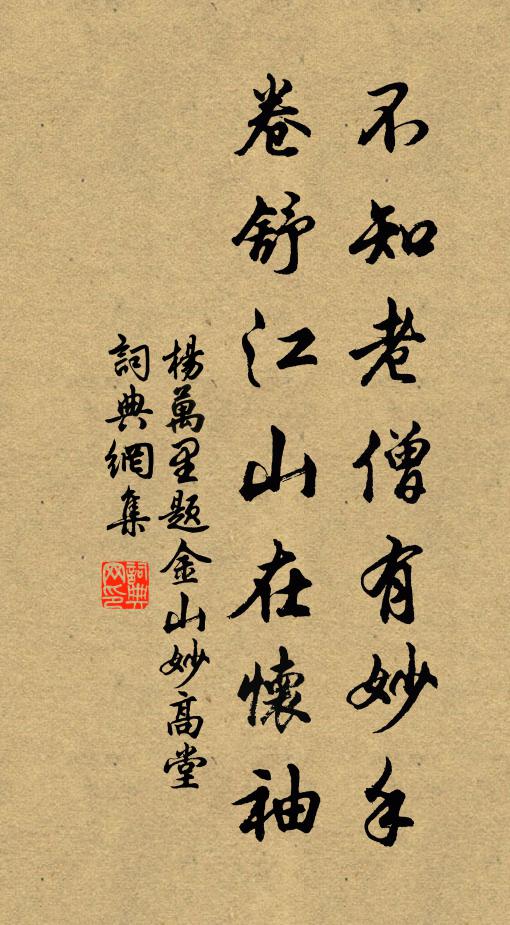 不知老僧有妙手
卷舒江山在懷袖
楊萬里题金山妙高堂
詞典網集
詞典网印